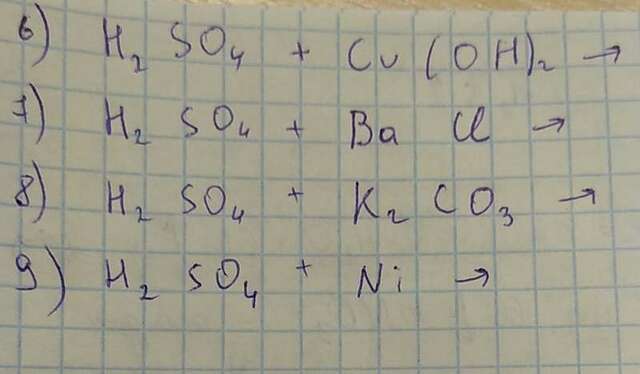 6) H₂ SO₄ + Cu (OH)₂ →
7) H₂ SO₄ + Ba Cl →
8) H₂ SO₄ + K₂ CO₃ →
9) H₂ SO₄ + Ni →